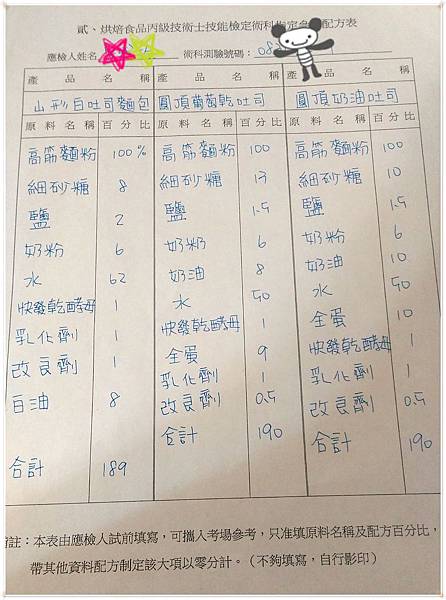 貳、烘焙食品丙級技術士技能檢定術科指定參 配方表
應檢人姓名 術科測驗號碼：08
產品名稱 產品名稱 產品名稱
山形白吐司麵包 圓頂葡萄乾吐司 圓頂奶油吐司
原料名稱 百分比 原料名稱 百分比 原料名稱 百分比
高筋麵粉 100% 高筋麵粉 100 高筋麵粉 100
細砂糖 8 細砂糖 13 細砂糖 10
鹽 2 鹽 1.5 鹽 1.5
奶粉 6 奶粉 6 奶粉 6
水 62 奶油 8 奶油 10
快發乾酵母 1 水 50 水 50
乳化劑 1 快發乾酵母 1 全蛋 10
改良劑 1 全蛋 9 快發乾酵母 1
白油 8 乳化劑 1 乳化劑 1
改良劑 0.5 改良劑 0.5
合計 189 合計 190 合計 190
附註：本表由應檢人試前填寫，可攜入考場參考，只准填原料名稱及配方百分比，
帶其他資料配方制定該大項以零分計。（不夠填寫，自行影印）